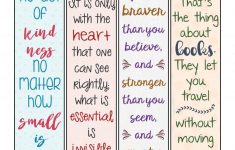 act of
kind
ness no
matter
how
small is
It is only
with the
heart that
one can
see rightly.
what is
essential
is
invisible
braver
than you
believe, and
stronger
than you
seem, and
That's
the thing
about
books.
They let
you
travel
without
moving